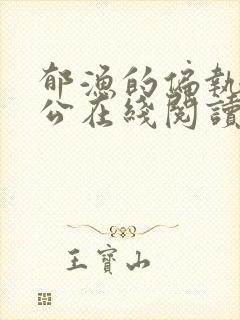 郁漁的偏執
公在綫閱讀
王寶山